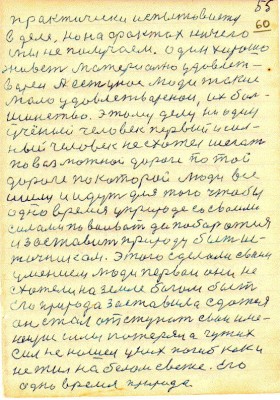 55
60
практически испытовист
в деле, но на фактах ничего
мы не получаем. один хорошо
живет материално удовлет-
а есть люди такие
мало удовлетварены, их бол-
шинство. Этому делу ни один
учёный человек первый и сил-
ный человек не схотел шагат
по возможной дороге по той
дороге по которой люди все
шли и идут для того чтобы
одно время у природе со своими
силами повоеват до побаражия
и заставит природу быт ис-
точникам. Этого сделали своим
умением люди перваи они не
схотели на земле богом быт
Его природа заставила сдатся
он стал отступат свои име-
ющие силы потерял а чужих
сил не нашел у них погиб как и
не жил на белом свете. Его
одно время природа